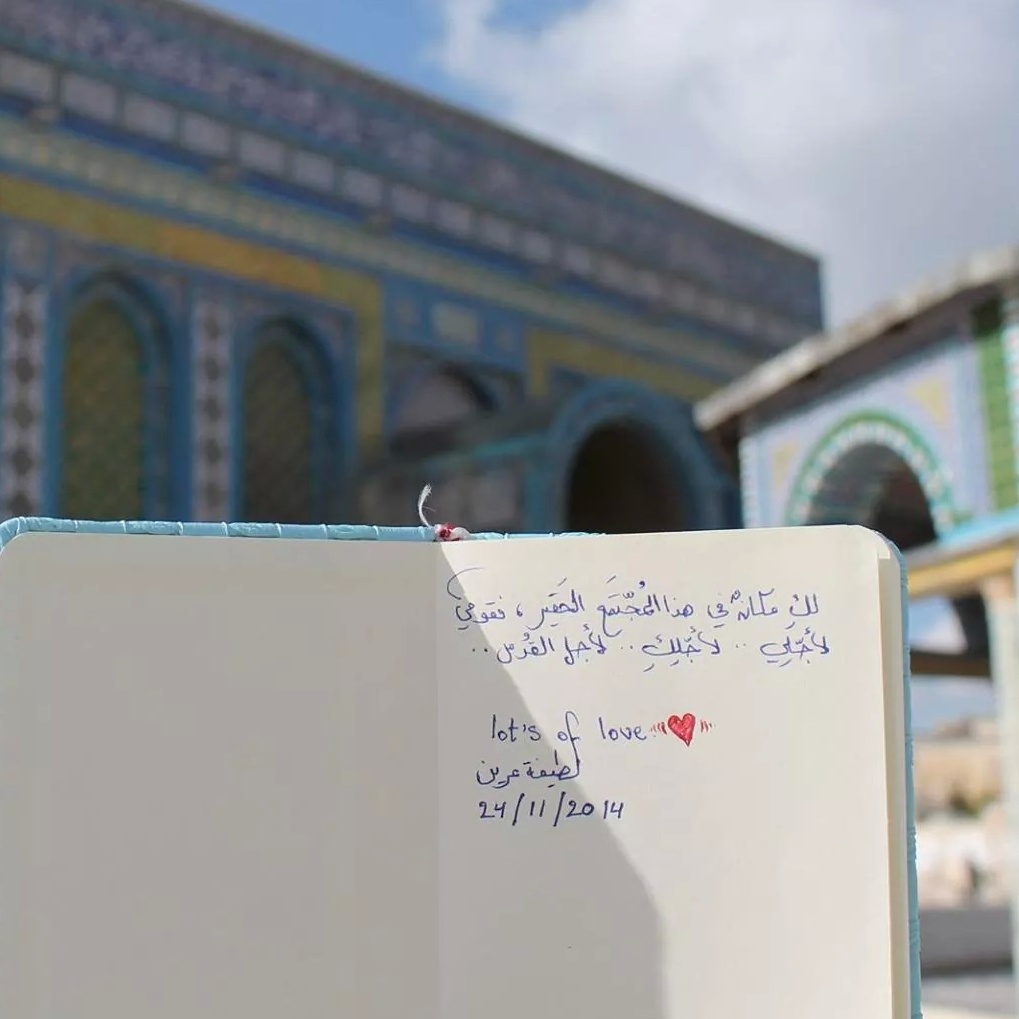 لكِ مكانةٌ في هذا المُجّتمَع الحَقِير ، فقومي
لأجّلي .. لأجّلِكِ .. لأجل القُدس ..
lot's of love
لطيفة عرين
24/11/2014